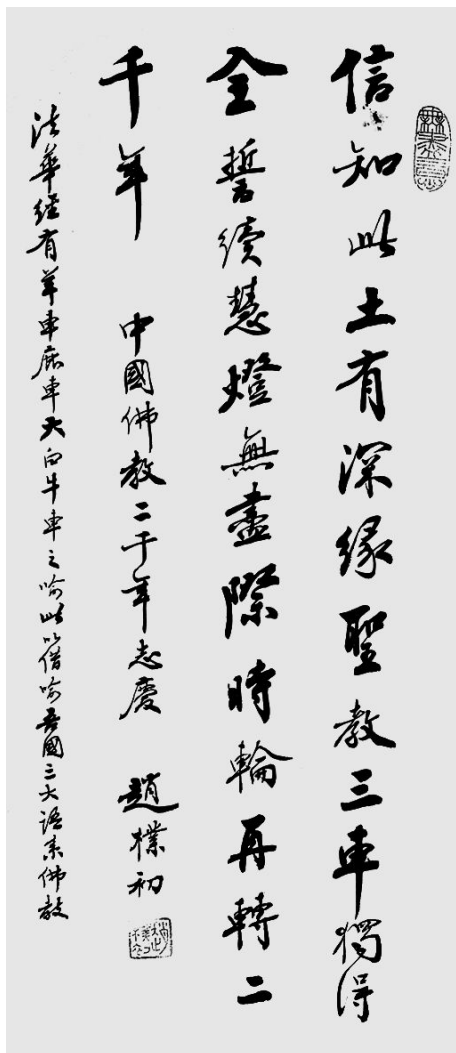 無盡意
信知此土有深緣聖教三車獨得
全誓續慧燈無盡際時輪再轉二
千年 中國佛教二千年志慶 趙樸初
法華經有羊車鹿車大白牛車之喻此以借喻吾國三大語系佛教